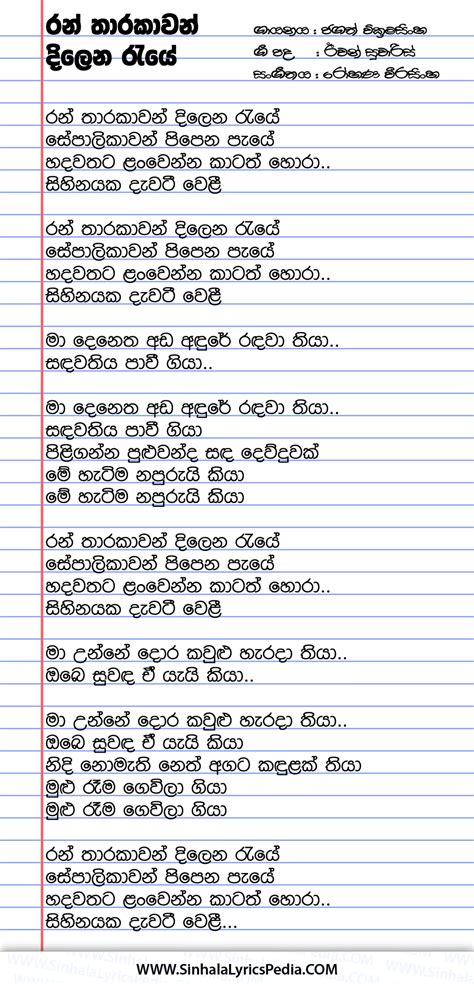 රන් තාරකාවන්
දිලෙන රැයේ
ගායනය : ජගත් වික්‍රමසිංහ
ගී පද : ඊවන් සුවාරිස්
සංගීතය : රෝහණ වීරසිංහ
රන් තාරකාවන් දිලෙන රැයේ
සේපාලිකාවන් පිපෙන පැයේ
හදවතට ළංවෙන්න කාටත් හොරා..
සිහිනයක දැවටී වෙළී
රන් තාරකාවන් දිලෙන රැයේ
සේපාලිකාවන් පිපෙන පැයේ
හදවතට ළංවෙන්න කාටත් හොරා..
සිහිනයක දැවටී වෙළී
මා දෙනෙත අඩ අඳුරේ රඳවා තියා..
සඳවතිය පාවී ගියා..
මා දෙනෙත අඩ අඳුරේ රඳවා තියා..
සඳවතිය පාවී ගියා
පිළිගන්න පුළුවන්ද සඳ දෙව්දුවක්
මේ හැටිම නපුරුයි කියා
මේ හැටිම නපුරුයි කියා
රන් තාරකාවන් දිලෙන රැයේ
සේපාලිකාවන් පිපෙන පැයේ
හදවතට ළංවෙන්න කාටත් හොරා..
සිහිනයක දැවටී වෙළී
මා උන්නේ දොර කවුළු හැරදා තියා..
ඔබෙ සුවඳ ඒ යැයි කියා..
මා උන්නේ දොර කවුළු හැරදා තියා..
ඔබෙ සුවඳ ඒ යැයි කියා
නිදි නොමැති නෙත් අගට කඳුළක් තියා
මුළු රෑම ගෙවිලා ගියා
මුළු රෑම ගෙවිලා ගියා
රන් තාරකාවන් දිලෙන රැයේ
සේපාලිකාවන් පිපෙන පැයේ
හදවතට ළංවෙන්න කාටත් හොරා..
සිහිනයක දැවටී වෙළී...
WWW.SinhalaLyricsPedia.COM